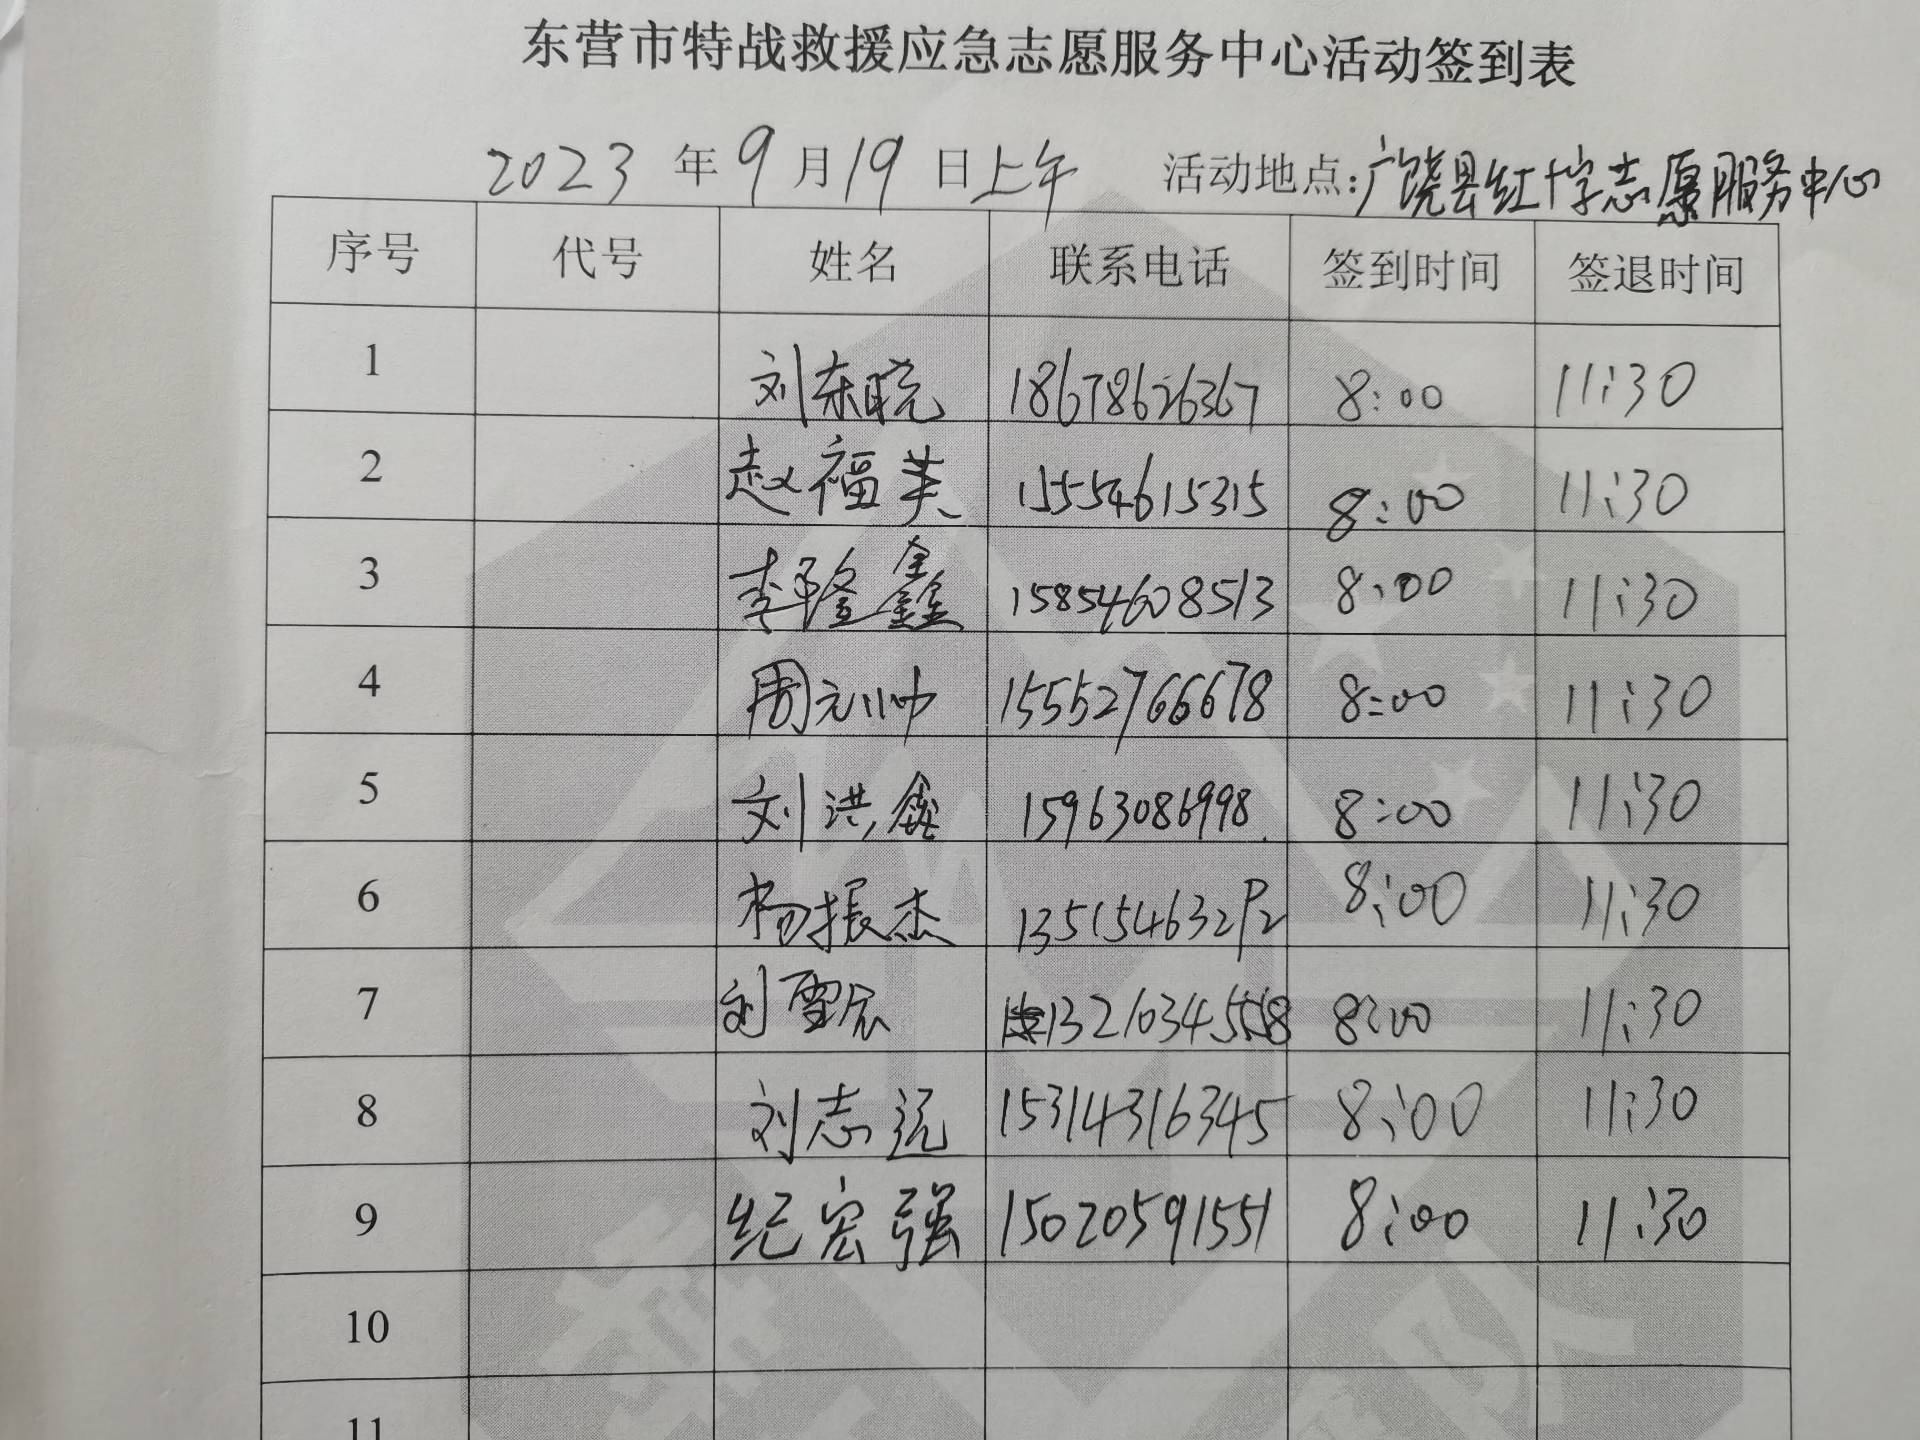 东营市特战救援应急志愿服务中心活动签到表
2023 年 9 月 19 日上午 活动地点:广饶县红十字志愿服务中心
序号 代号 姓名 联系电话 签到时间 签退时间
1 刘东晓 18678626367 8:00 11:30
2 赵福美 15554615315 8:00 11:30
3 李隆鑫 15854608513 8:00 11:30
4 周元帅 15552766678 8:00 11:30
5 刘洪鑫 15963086998 8:00 11:30
6 杨振杰 13515463292 8:00 11:30
7 刘雪辰 13210345558 8:00 11:30
8 刘志远 15314316345 8:00 11:30
9 纪宏强 15020591551 8:00 11:30
10
11